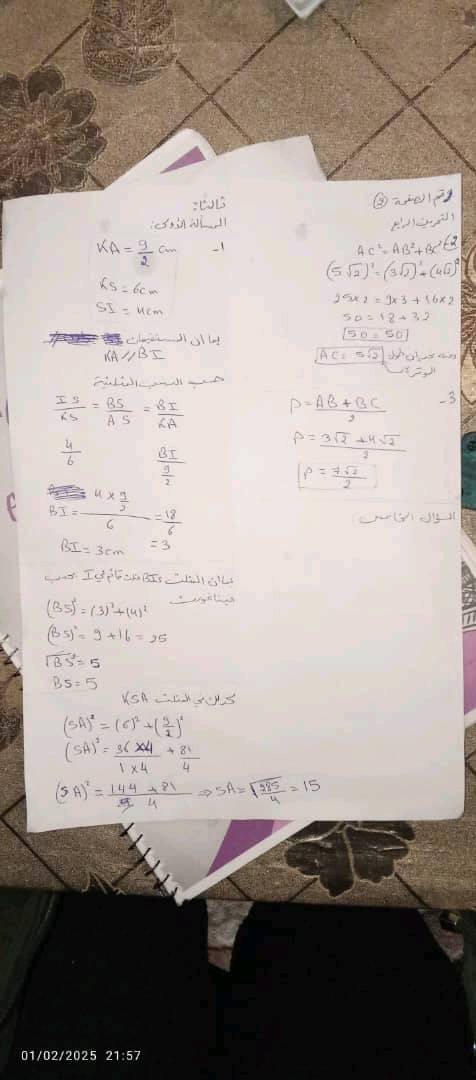 رقم الصفحة ③
التمرين الرابع
2- AC² = AB² + BC²
(5√2)² = (3√2)² + (4√2)²
25×2 = 9×3 + 16×2
50 = 18 + 32
50 = 50
طول AC = 5√2
الوتر
3-
P = AB + BC / 2
P = 3√2 + 4√2 / 2
P = 7√2 / 2
السؤال الخامس
ثالثا:
المسألة الأولى:
1- KA = 9/2 cm
KS = 6cm
SI = 4cm
بما أن المستقيمان
KA // BI
حسب النسب المثلثية
IS/KS = BS/AS = BI/KA
4/6 BI/(9/2)
BI = (4 × 9/2)/6 = 18/6
BI = 3cm = 3
بما أن المثلث BIS مثلث قائم في I حسب
فيثاغورث
(BS)² = (3)² + (4)²
(BS)² = 9 + 16 = 25
√BS² = 5
BS = 5
كذلك في المثلث KSA
(SA)² = (6)² + (9/2)²
(SA)² = 36×4/1×4 + 81/4
(SA)² = 144 + 81 / 4 ⇒ SA = = 15
01/02/2025 21:57